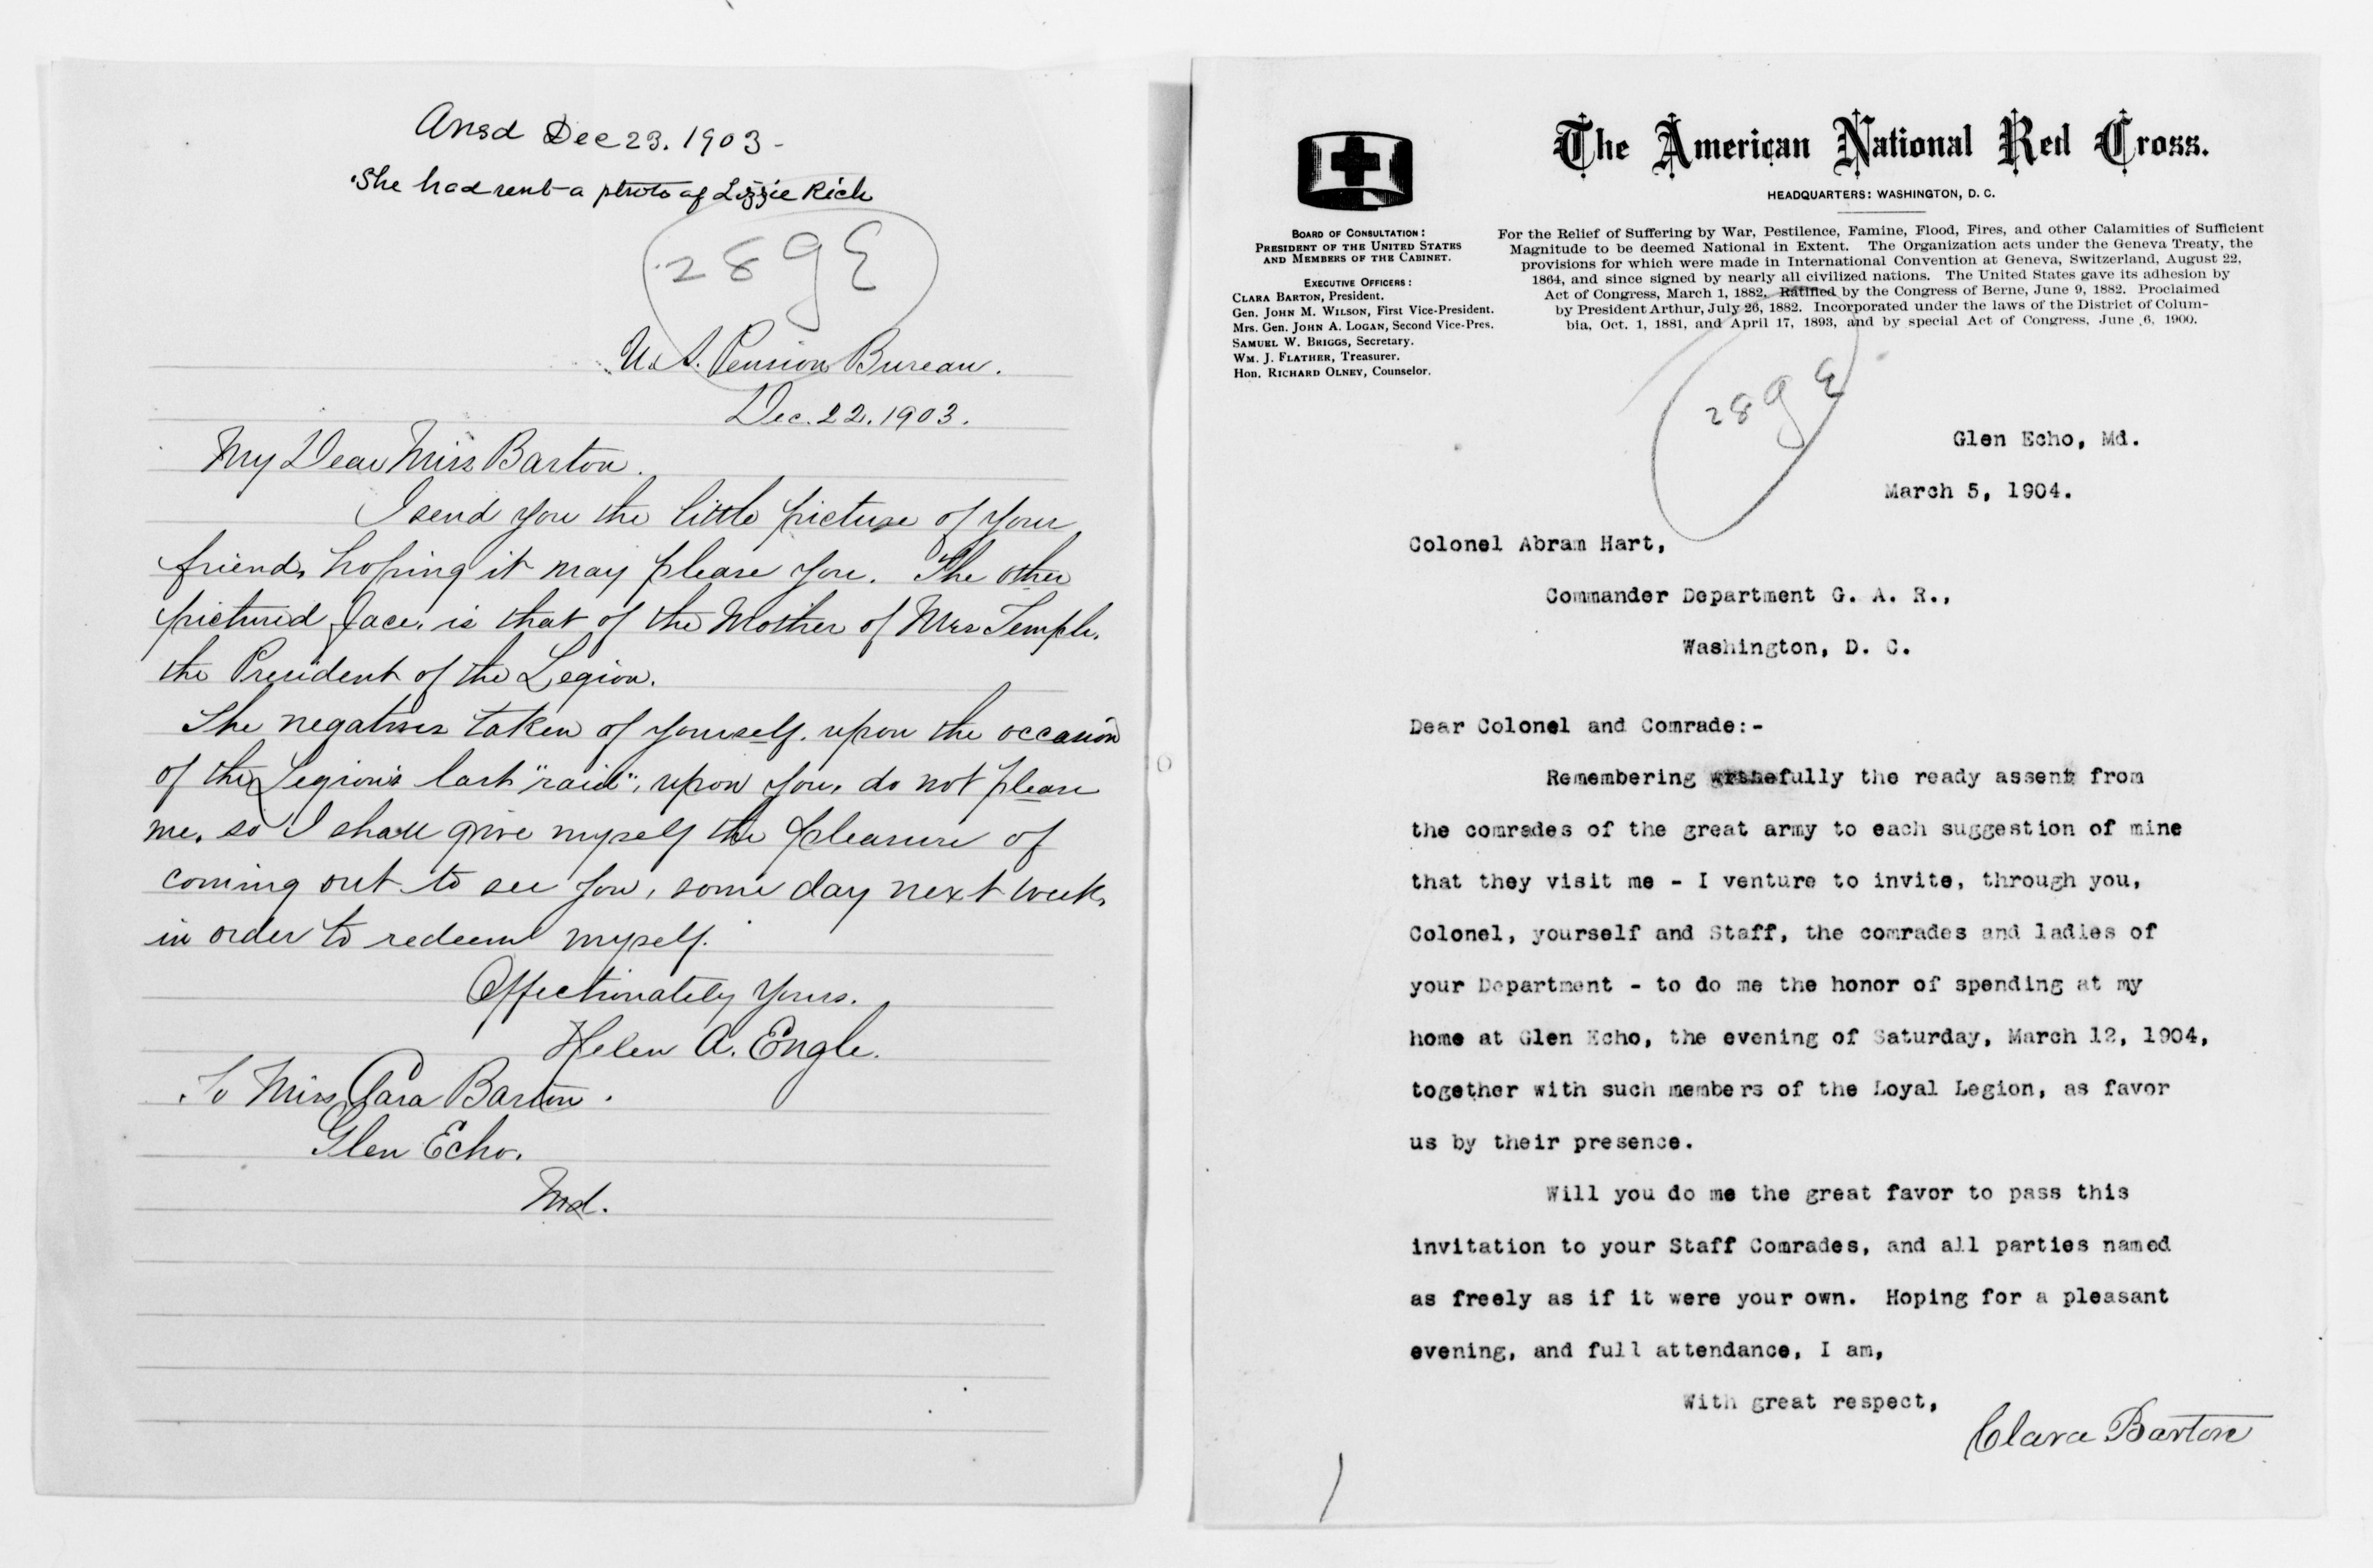 Ansd Dec 23. 1903 -
"She had sent a photo of Lizzie Rich
289E
U.S. Pension Bureau.
Dec. 22. 1903.
My Dear Miss Barton.
I send you the little picture of your
friend, hoping it may please you. The other
pictured face, is that of the Mother of Mrs Temple,
the President of the Legion.
The negatives taken of yourself upon the occasion
of the Legion's last "raid", upon you, do not please
me, so I shall give myself the pleasure of
coming out to see you, some day next week,
in order to redeem myself.
Affectionately Yours.
Helen A. Engle.
To Miss Clara Barton.
Glen Echo.
Md.
The American National Red Cross.
HEADQUARTERS: WASHINGTON, D. C.
BOARD OF CONSULTATION:
PRESIDENT OF THE UNITED STATES
AND MEMBERS OF THE CABINET.
EXECUTIVE OFFICERS:
CLARA BARTON, President.
Gen. JOHN M. WILSON, First Vice-President.
Mrs. Gen. JOHN A. LOGAN, Second Vice-Pres.
SAMUEL W. BRIGGS, Secretary.
WM. J. FLATHER, Treasurer.
Hon. RICHARD OLNEY, Counselor.
For the Relief of Suffering by War, Pestilence, Famine, Flood, Fires, and other Calamities of Sufficient
Magnitude to be deemed National in Extent. The Organization acts under the Geneva Treaty, the
provisions for which were made in International Convention at Geneva, Switzerland, August 22,
1864, and since signed by nearly all civilized nations. The United States gave its adhesion by
Act of Congress, March 1, 1882. Ratified by the Congress of Berne, June 9, 1882. Proclaimed
by President Arthur, July 26, 1882. Incorporated under the laws of the District of Colum-
bia, Oct. 1, 1881, and April 17, 1893, and by special Act of Congress, June 6, 1900.
289E
Glen Echo, Md.
March 5, 1904.
Colonel Abram Hart,
Commander Department G. A. R.,
Washington, D. C.
Dear Colonel and Comrade:-
Remembering the ready assent from
the comrades of the great army to each suggestion of mine
that they visit me - I venture to invite, through you,
Colonel, yourself and Staff, the comrades and ladies of
your Department - to do me the honor of spending at my
home at Glen Echo, the evening of Saturday, March 12, 1904,
together with such members of the Loyal Legion, as favor
us by their presence.
Will you do me the great favor to pass this
invitation to your Staff Comrades, and all parties named
as freely as if it were your own. Hoping for a pleasant
evening, and full attendance, I am,
With great respect,
Clara Barton